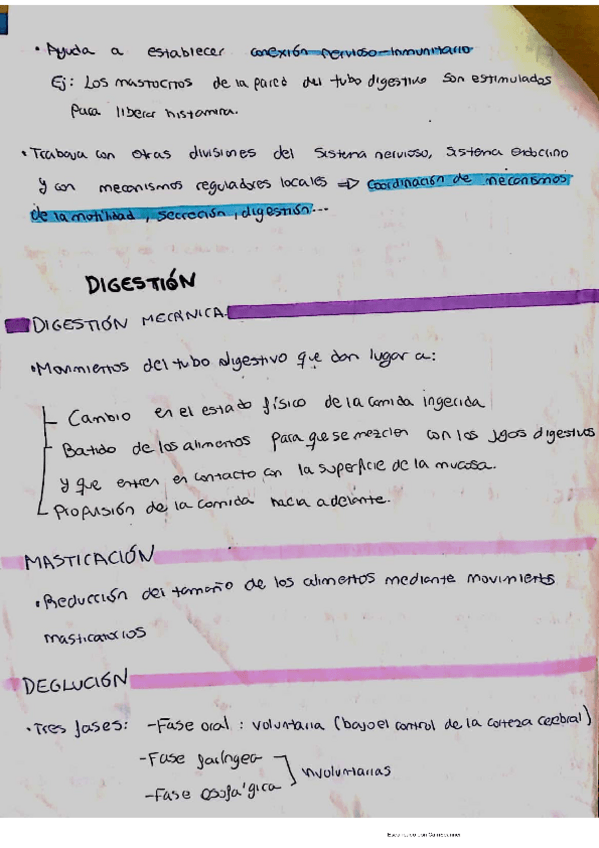 • Ayuda a establecer conexión nervioso-inmunitario
Ej: Los mastocitos de la pared del tubo digestivo son estimulados
para liberar histamina.
• Trabaja con otras divisiones del sistema nervioso, sistema endocrino
y con mecanismos reguladores locales ⇒ coordinación de mecanismos
de la motilidad, secreción, digestión...
DIGESTIÓN
DIGESTIÓN MECÁNICA.
• Movimientos del tubo digestivo que dan lugar a:
- Cambio en el estado físico de la comida ingerida
- Batido de los alimentos para que se mezclen con los jugos digestivos
y que entren en contacto con la superficie de la mucosa.
- Propulsión de la comida hacia adelante.
MASTICACIÓN
• Reducción del tamaño de los alimentos mediante movimients
masticatorios
DEGLUCIÓN
• Tres fases: - Fase oral: voluntaria (bajo el control de la corteza cerebral)
- Fase faríngea
involuntarias
- Fase esofágica
Escaneado con CamScanner